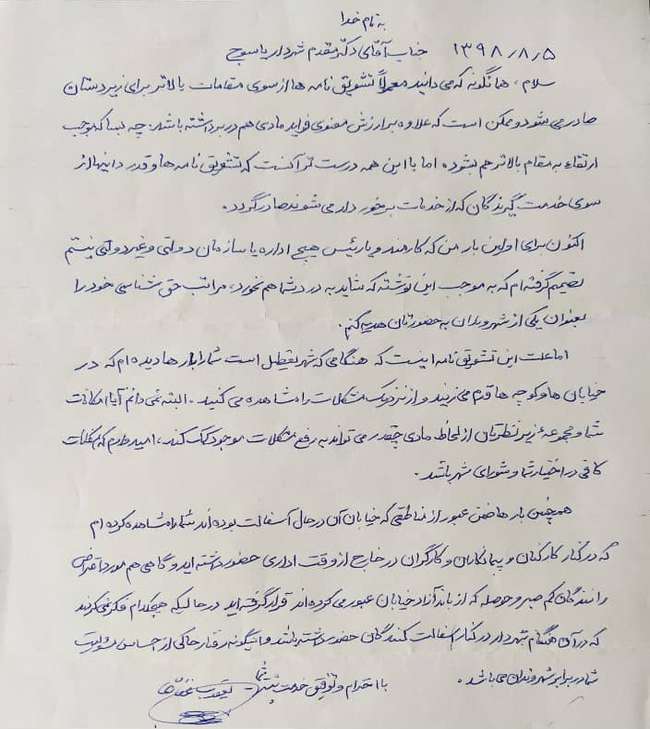 به نام خدا
جناب آقای دکتر مقدم شهردار یاسوج ۱۳۹۸/۸/۵
سلام، همانگونه که می دانید معمولاً تشویق نامه ها از سوی مقامات بالاتر برای زیردستان
صادر می شود و ممکن است که علاوه بر ارزش معنوی فواید مادی هم در بر داشته باشد. چه بسا که موجب
ارتقاء به مقام بالاتر هم بشود، اما با این همه درست تر آنست که تشویق نامه ها و قدردانیها از
سوی خدمت گیرندگان که از خدمات برخوردار می شوند صادر گردد.
اکنون برای اولین بار من که کارمند و یا رئیس هیچ اداره یا سازمان دولتی و غیر دولتی نیستم
تصمیم گرفته ام که به موجب این نوشته که شاید به درد شما هم نخورد، مراتب حق شناسی خود را
بعنوان یکی از شهروندان به حضورتان هدیه کنم.
اما علت این تشویق نامه اینست که هنگامی که شهر تعطیل است شما را بارها دیده ام که در
خیابان ها و کوچه ها قدم می زنید و از نزدیک مشکلات را مشاهده می کنید. البته نمی دانم آیا امکانات
شما و مجموعهٔ زیر نظرتان از لحاظ مادی چقدر می تواند به رفع مشکلات موجود کمک کند، امیدوارم که امکانات
کافی در اختیار شما و شورای شهر باشد.
همچنین بارها ضمن عبور از مناطقی که خیابان آن در حال آسفالت بوده اند شما را مشاهده کرده ام
که در کنار کارکنان و پیمانکاران و کارگران در خارج از وقت اداری حضور داشته اید و گاهی هم مورد اعتراض
رانندگان کم صبر و حوصله که از باند آزاد خیابان عبور می کرده اند قرار گرفته اید در حالیکه هیچکدام فکر نمی کردند
که در آن هنگام شهردار در کنار آسفالت کنندگان حضور داشته باشند و اینگونه رفتار حاکی از احساس مسئولیت
شما در برابر شهروندان می باشد.
با احترام و توفیق خدمت بیشتر شما یعقوب